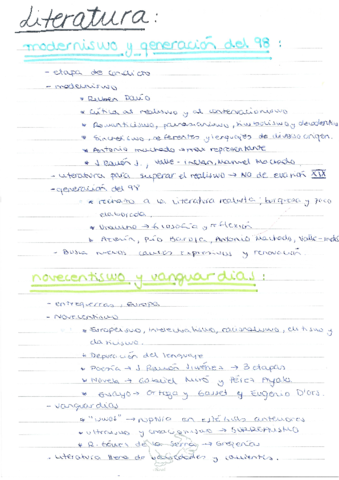 Literatura:
modernismo y generación del 98:
- etapa de conflicto
- modernismo
* Rubén Darío
* Crítica al realismo y al
* Romanticismo, parnasianismo, simbolismo y decadentismo
* Sincretismo, referentes y lenguajes de diverso origen.
* Antonio Machado → más representante
* J. Ramón J., Valle-Inclán, Manuel Machado.
- Literatura para superar el realismo → NO de evasión XIX
- generación del 98
* rechazo a la literatura realista, burguesa y poco
elaborada.
* → filosofía y reflexión
* Azorín, Pío Baroja, Antonio Machado, Valle-Inclán
- Busca nuevos cauces expresivos y renovación
novecentismo y vanguardias:
- entreguerras, Europa
- novecentismo
* Europeísmo, intelectualismo, racionalismo, elitismo y
clasicismo.
* Depuración del lenguaje
* Poesía → J. Ramón Jiménez → 3 etapas
* Novela → Gabriel Miró y Pérez Ayala
* ensayo → Ortega y Gasset y Eugenio D'ors.
- vanguardias
* "ismos" → ruptura en estéticas anteriores
* ultraísmo y creacionismo → SURREALISMO
* R. Gómez de la Serna → Greguería
- Literatura llena de y